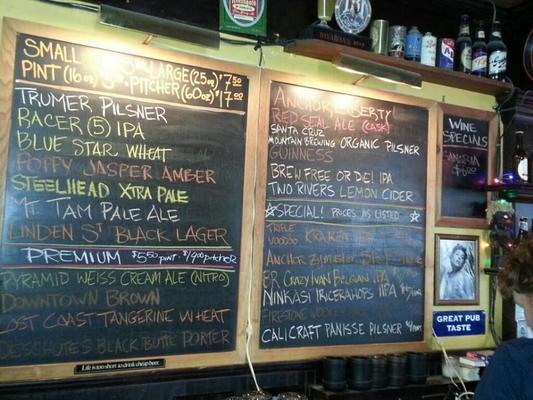 SMALL LARGE (25oz) $7.50
PINT (16oz) PITCHER (60oz) $17.00
TRUMER PILSNER
RACER (5) IPA
BLUE STAR WHEAT
POPPY JASPER AMBER
STEELHEAD XTRA PALE
MT. TAM PALE ALE
LINDEN ST BLACK LAGER
PREMIUM $5.50 PINT - $19.00 PITCHER
PYRAMID WEISS CREAM ALE (NITRO)
DOWNTOWN BROWN
LOST COAST TANGERINE WHEAT
DESCHUTES BLACK BUTTE PORTER
Life is too short to drink cheap beer.
ANCHOR LIBERTY
RED SEAL ALE (CASK)
SANTA CRUZ
MOUNTAIN BREWING ORGANIC PILSNER
GUINNESS
BREW FREE OR DIE! IPA
TWO RIVERS LEMON CIDER
SPECIAL! PRICES AS LISTED
TRIPLE
VOODOO KRAKEN
ANCHOR
CRAZY IVAN BELGIAN IPA
NINKASI TRICERAHOPS IPA
FIRESTONE
CALICRAFT PANISSE PILSNER
WINE
SPECIALS
SANGRIA
$6.00
GREAT PUB
TASTE